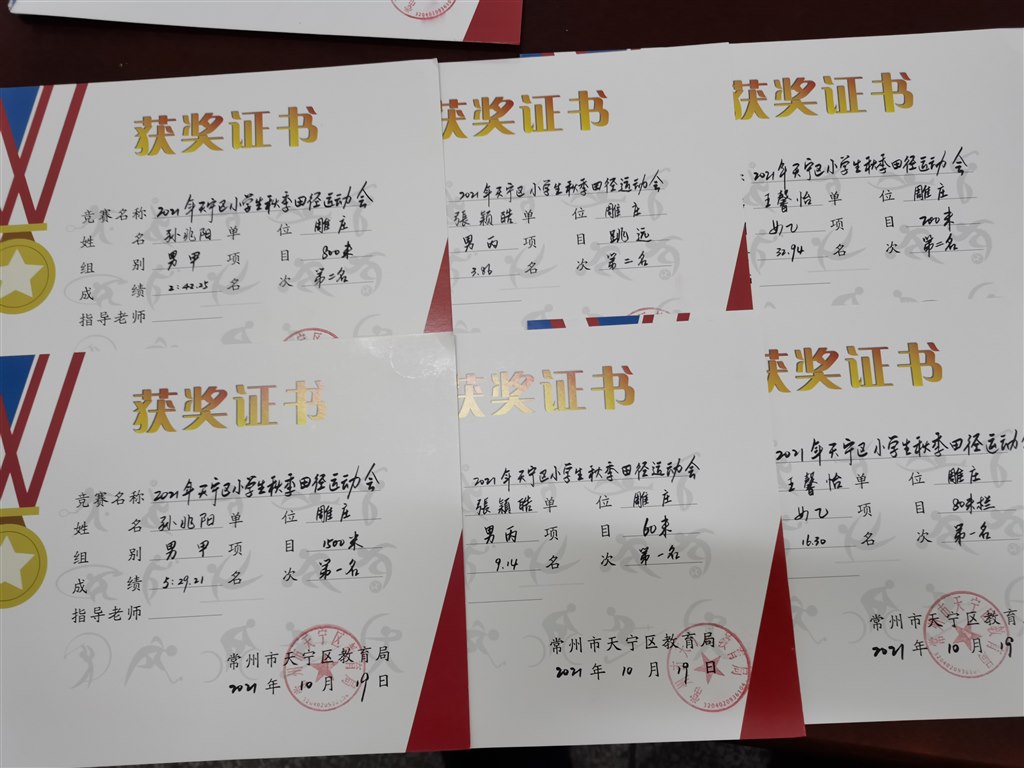 获奖证书
竞赛名称 2021年天宁区小学生秋季田径运动会
姓名 孙兆阳 单位 雕庄
组别 男甲 项目 800米
成绩 2:42.25 名次 第二名
指导老师
获奖证书
2021年天宁区小学生秋季田径运动会
張颖皓 单位 雕庄
男丙 项目 跳远
3.86 名次 第二名
获奖证书
: 2021年天宁区小学生秋季田径运动会
王馨怡 单位 雕庄
女乙 项目 200米
32.94 名次 第二名
获奖证书
竞赛名称 2021年天宁区小学生秋季田径运动会
姓名 孙兆阳 单位 雕庄
组别 男甲 项目 1500米
成绩 5:29.21 名次 第一名
指导老师
常州市天宁区教育局
2021年10月19日
获奖证书
2021年天宁区小学生秋季田径运动会
張颖皓 单位 雕庄
男丙 项目 60米
9.14 名次 第一名
常州市天宁区教育局
2021年10月19日
获奖证书
2021年天宁区小学生秋季田径运动会
王馨怡 单位 雕庄
女乙 项目 80米栏
16.30 名次 第一名
常州市天宁区教育
2021年10月19